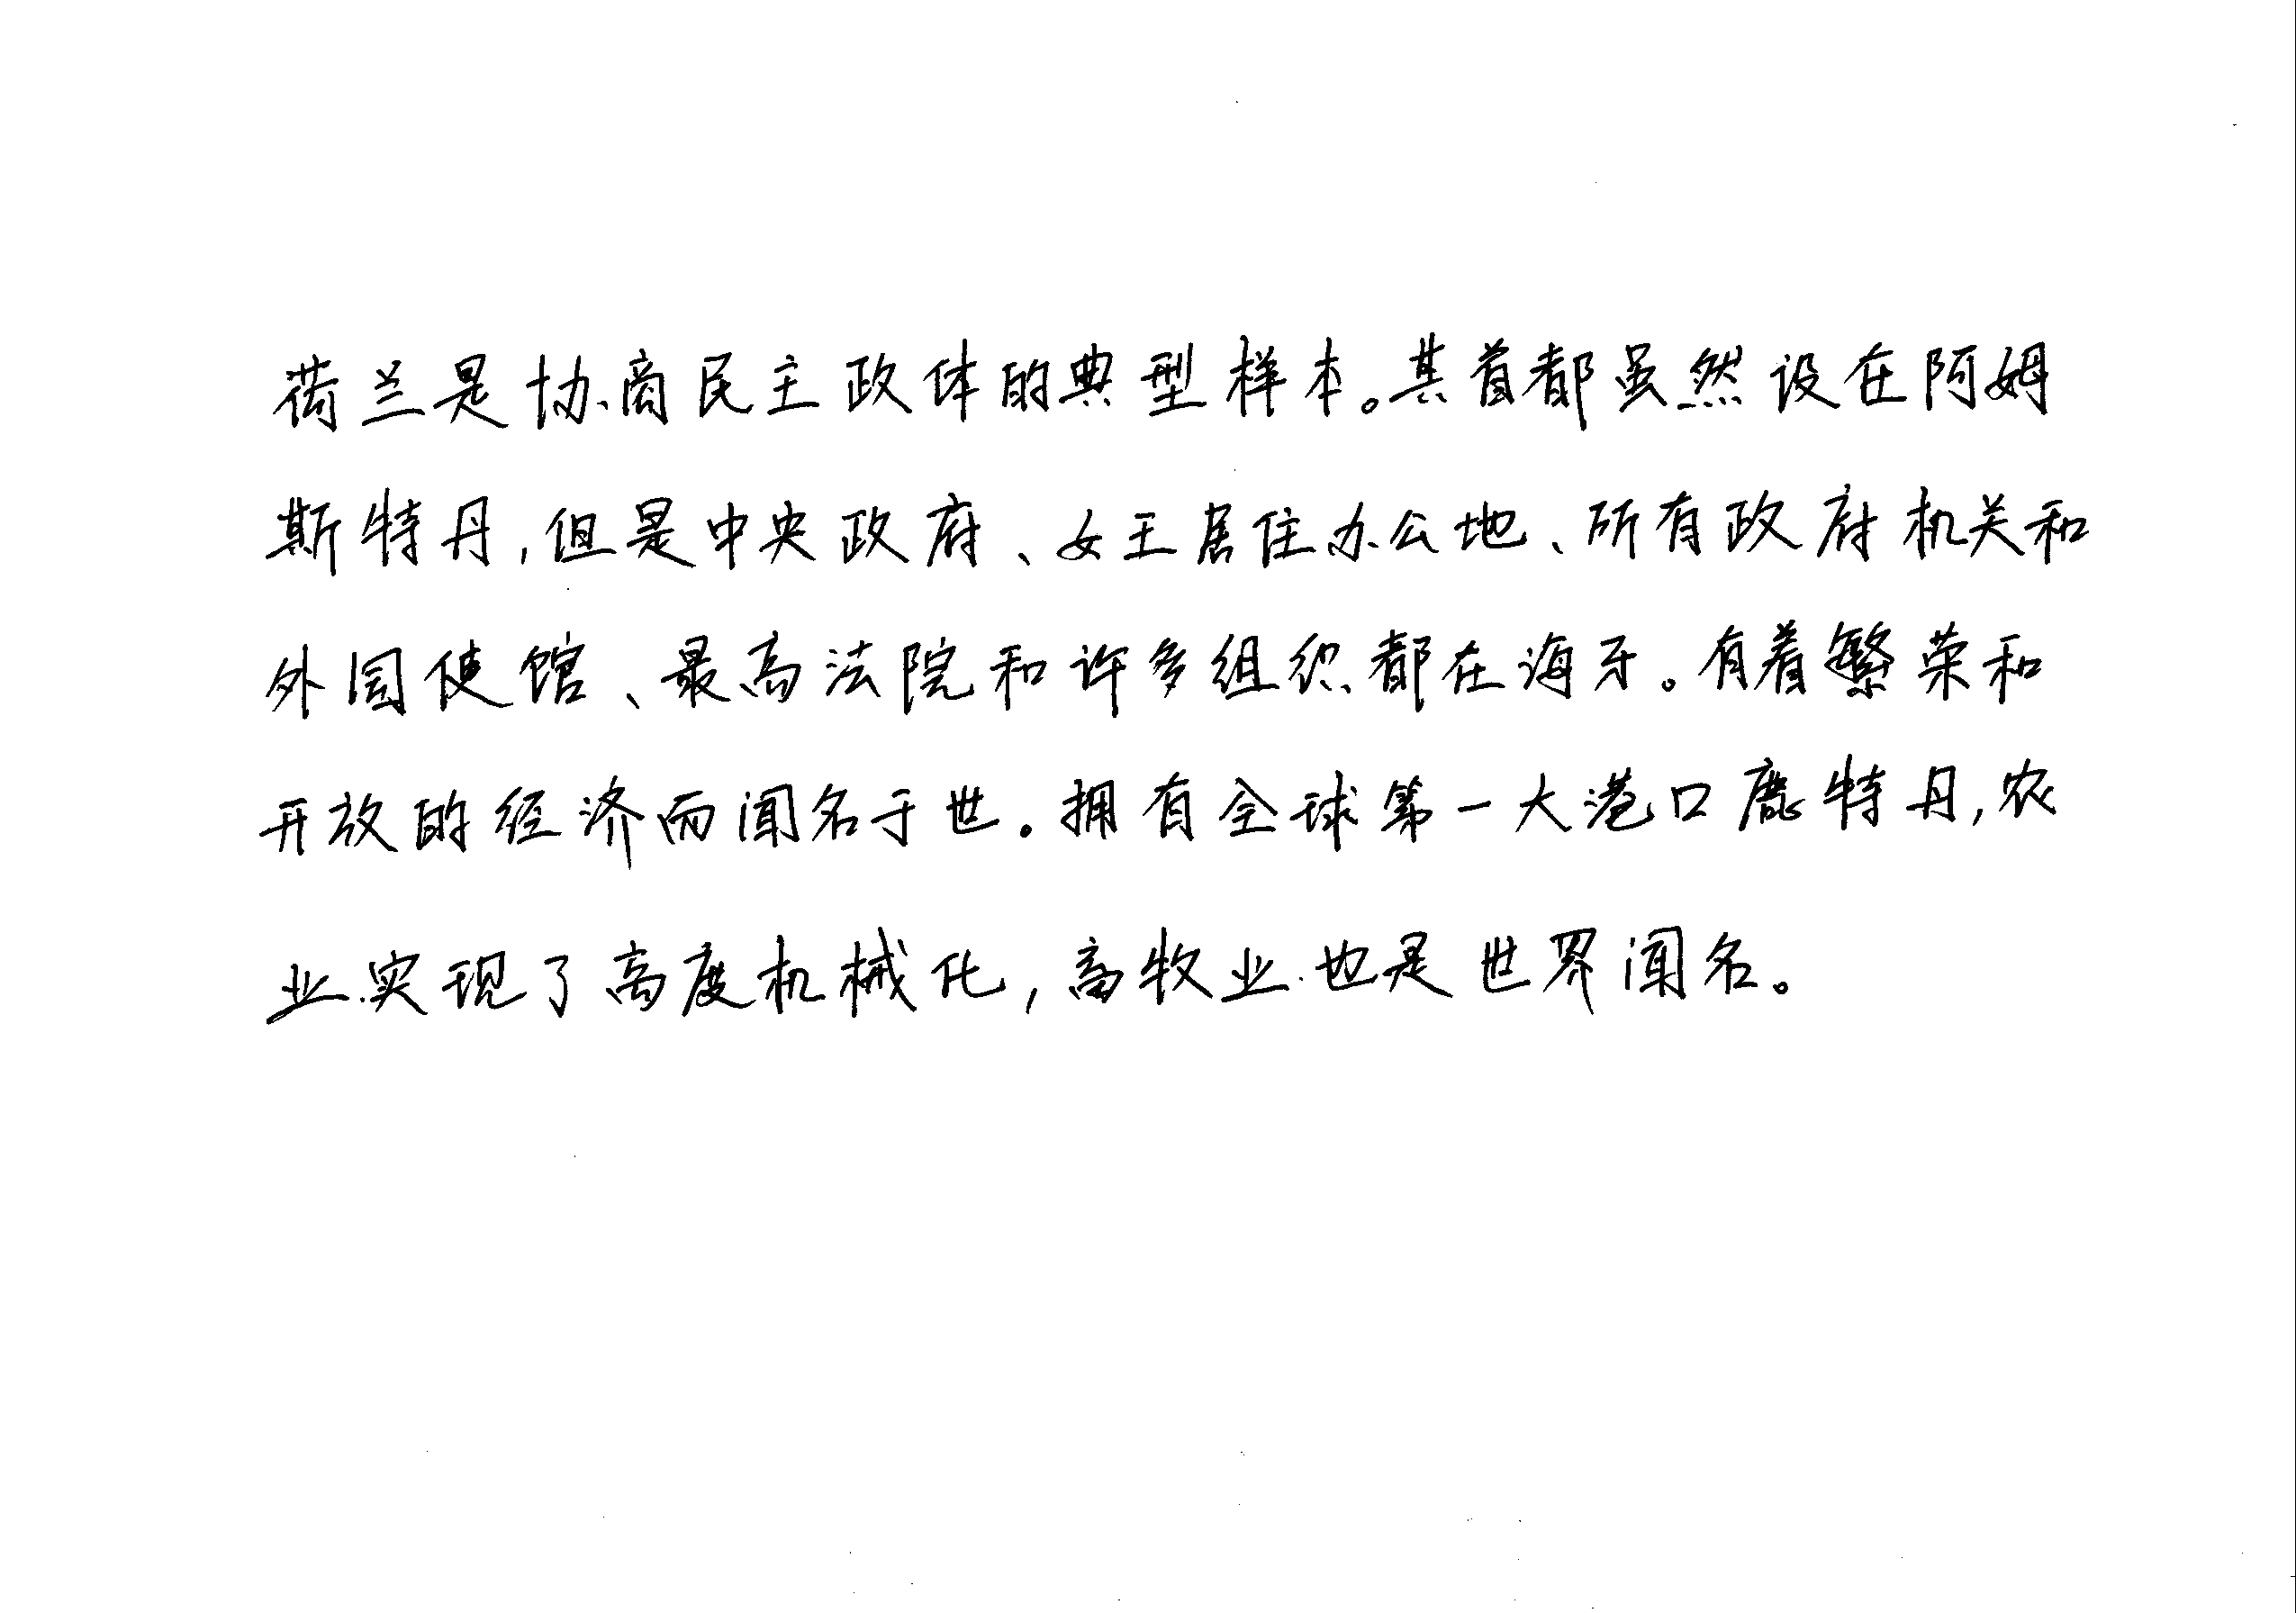 荷兰是协商民主政体的典型样本。其首都虽然设在阿姆
斯特丹,但是中央政府、女王居住办公地、所有政府机关和
外国使馆、最高法院和许多组织都在海牙。有着繁荣和
开放的经济而闻名于世。拥有全球第一大港口鹿特丹,农
业实现了高度机械化,畜牧业也是世界闻名。